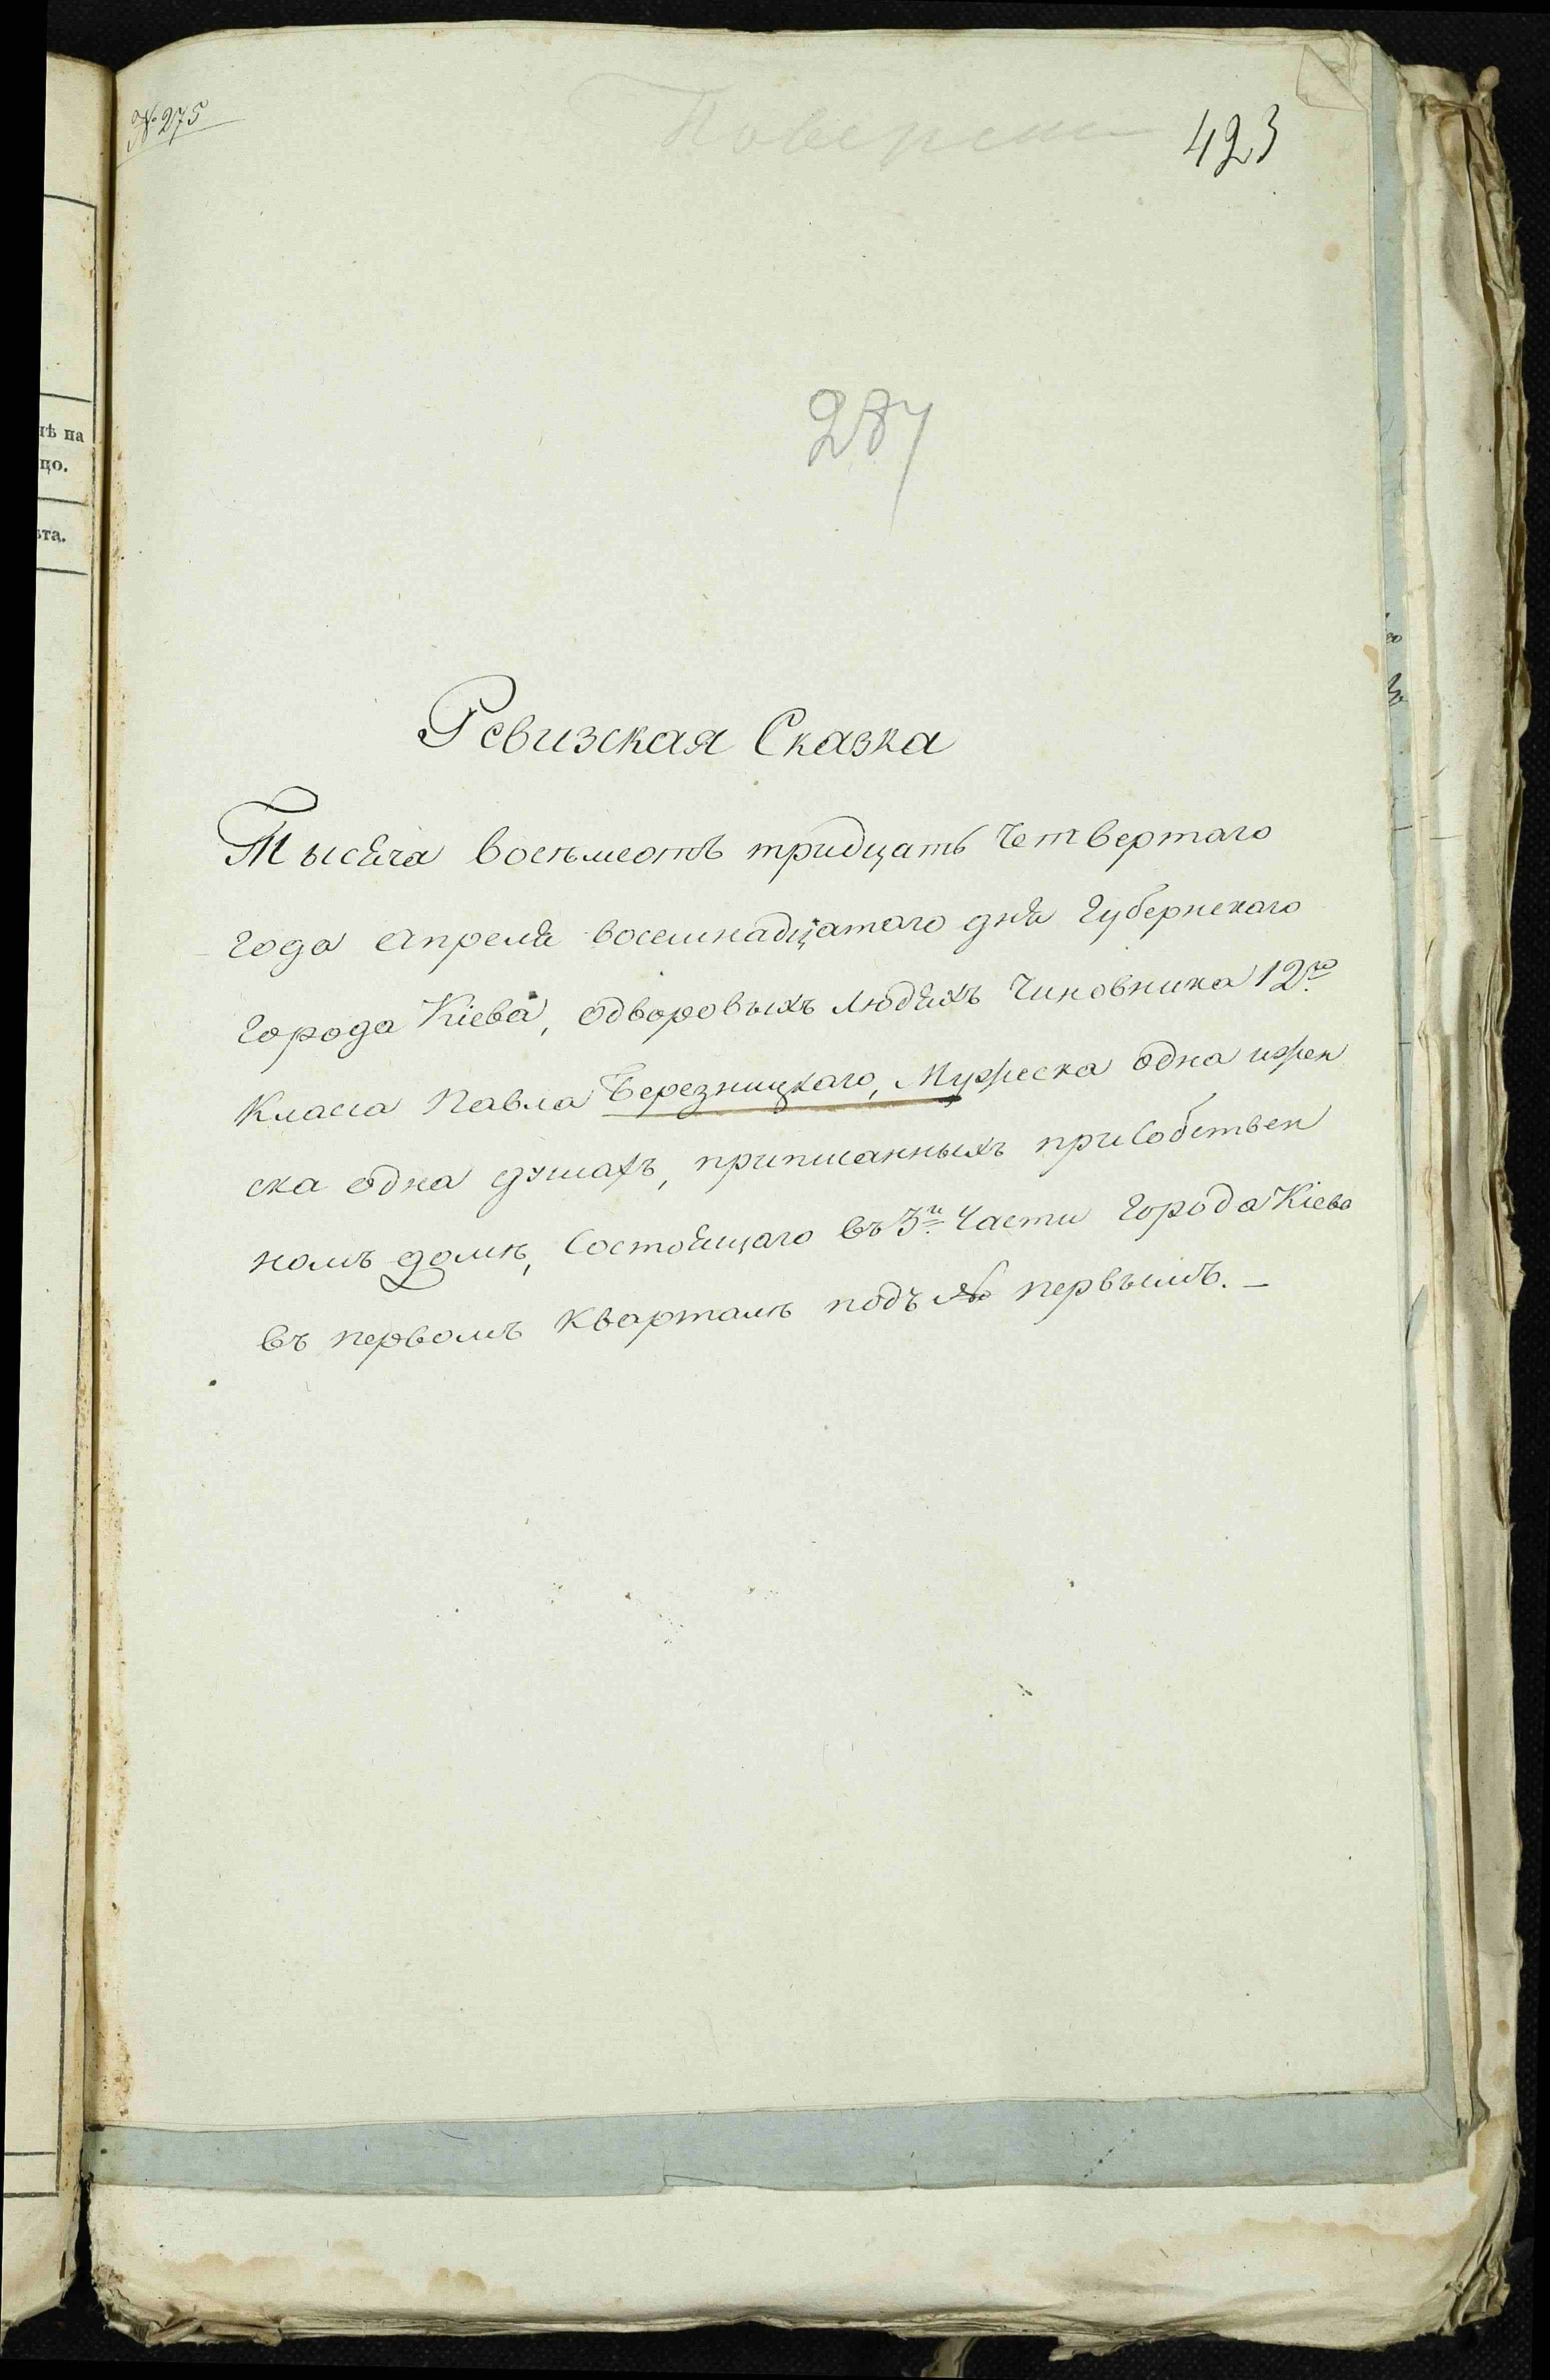 № 275
423
287
Ревизская Сказка
Тысяча восемьсотъ тридцать Четвертаго
года апреля восемнадцатаго дня Губернскаго
города Кіева, одворовыхъ людяхъ Чиновника 12го
класса Павла Березницкаго, Мужеска одна ижен
ска одна душахъ, приписанныхъ присобствен
номъ домѣ, Состоящаго въ 3й Части города Кіева
въ первомъ кварталѣ подъ № первымъ. —